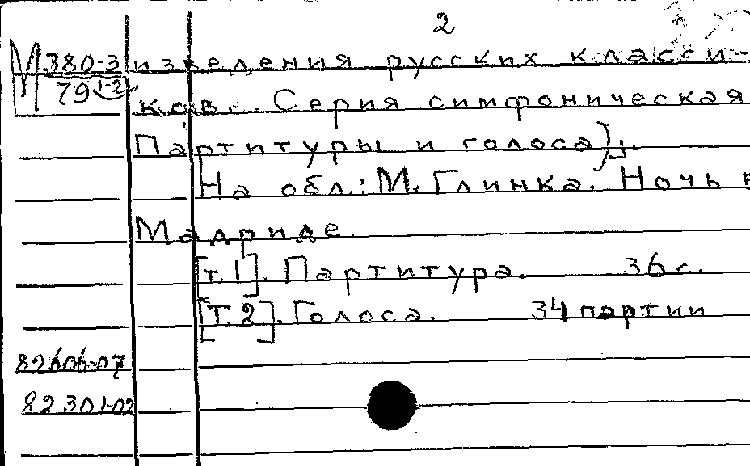 2
М 380-3 изведения русских класси-
79 1-2 ков. Серия симфоническая
Партитуры и голоса).
На обл.: М. Глинка. Ночь в
Мадриде.
[Т. 1]. Партитура. 36 с.
[Т. 2]. Голоса. 34 партии
82606-07
82301-02